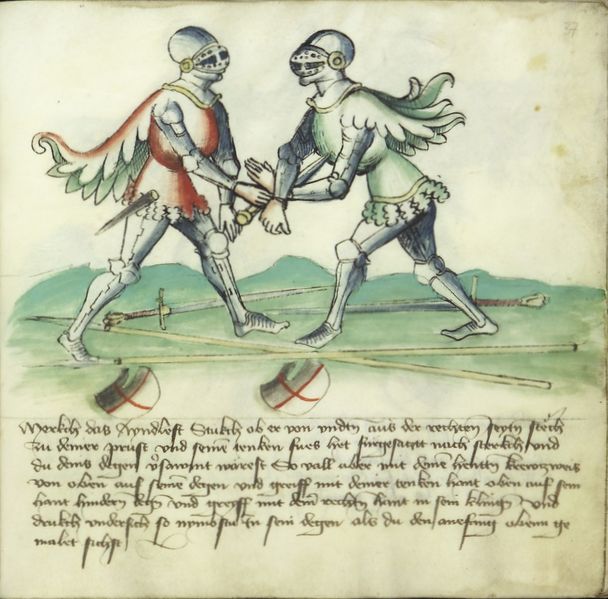 37
Merkch das Ayndlefft Stukch ob er von vndtn aus der rechten seytn stech
zu deiner prust vnd seinē tenken fues het fürgesaczt nach sterkch vnd
du deins degen v̓sawmt wärest So vall aber mit deinē henttn krewtzweis
von obenn auf seinē degen vnd greiff mit deiner tenken hant oben auf sein
hant hindern degn̄ vnd greyff mit dein̄ rechtn̄ hant in sein klingen vnd
drukch vndersich so nymbstu Im sein degen als du den obenn ge
malet sichst